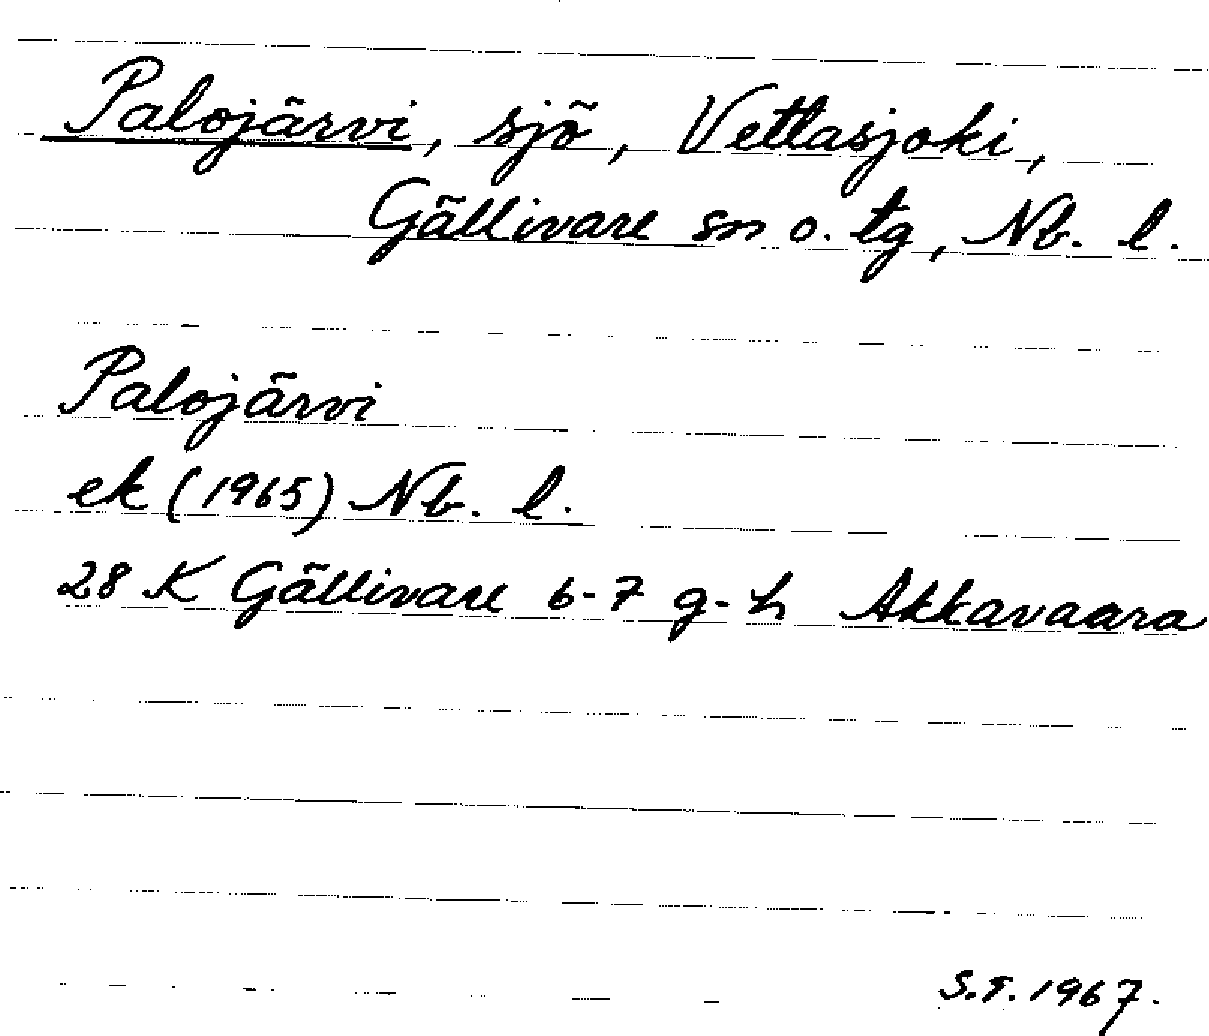 Palojärvi, sjö, Vettasjoki,
Gällivare sn o. tg, Nb. l.
Palojärvi
ek (1965) Nb. l.
28 K Gällivare 6-7 g-h Akkavaara
S.T. 1967.